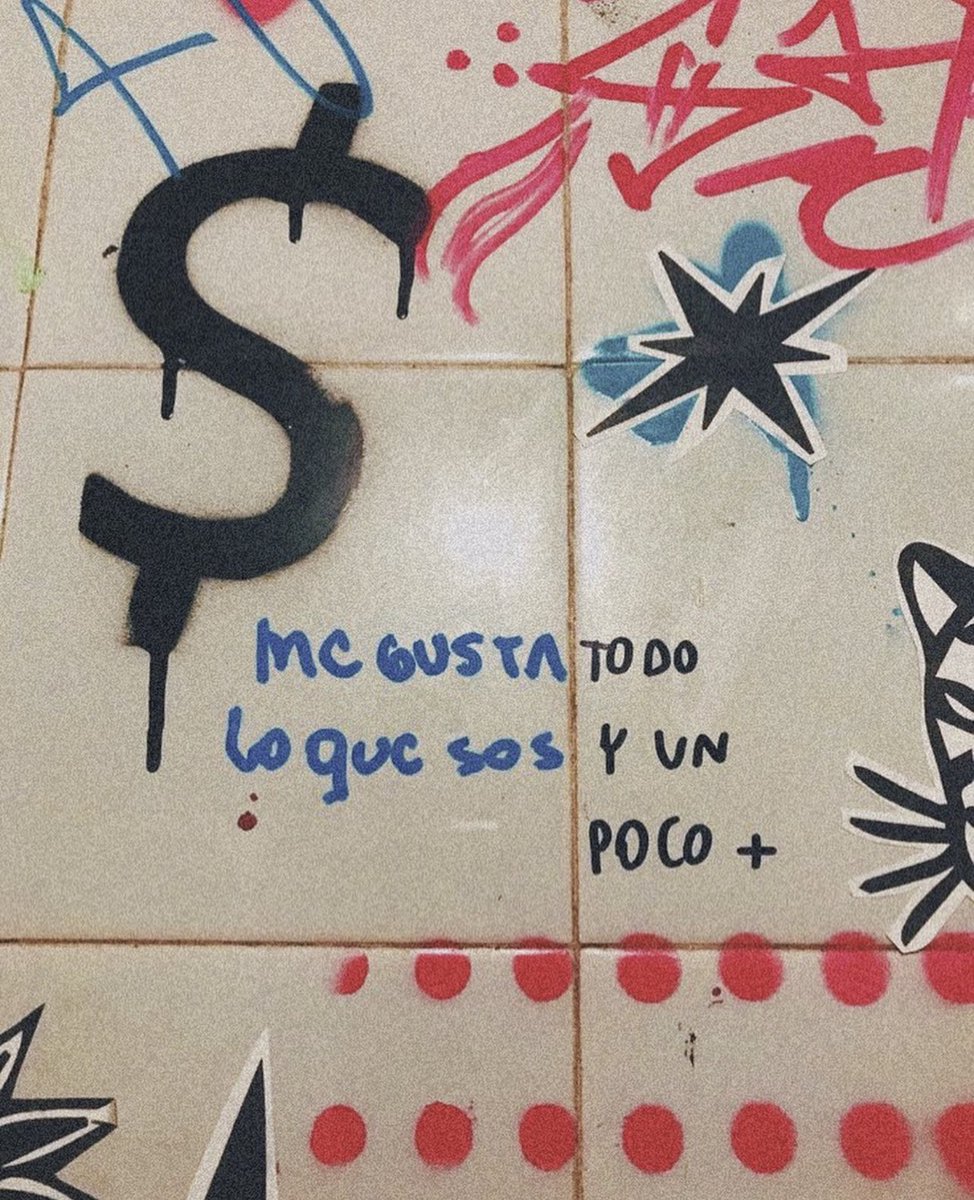 $
ME GUSTA TODO
Lo que sos Y UN
POCO +